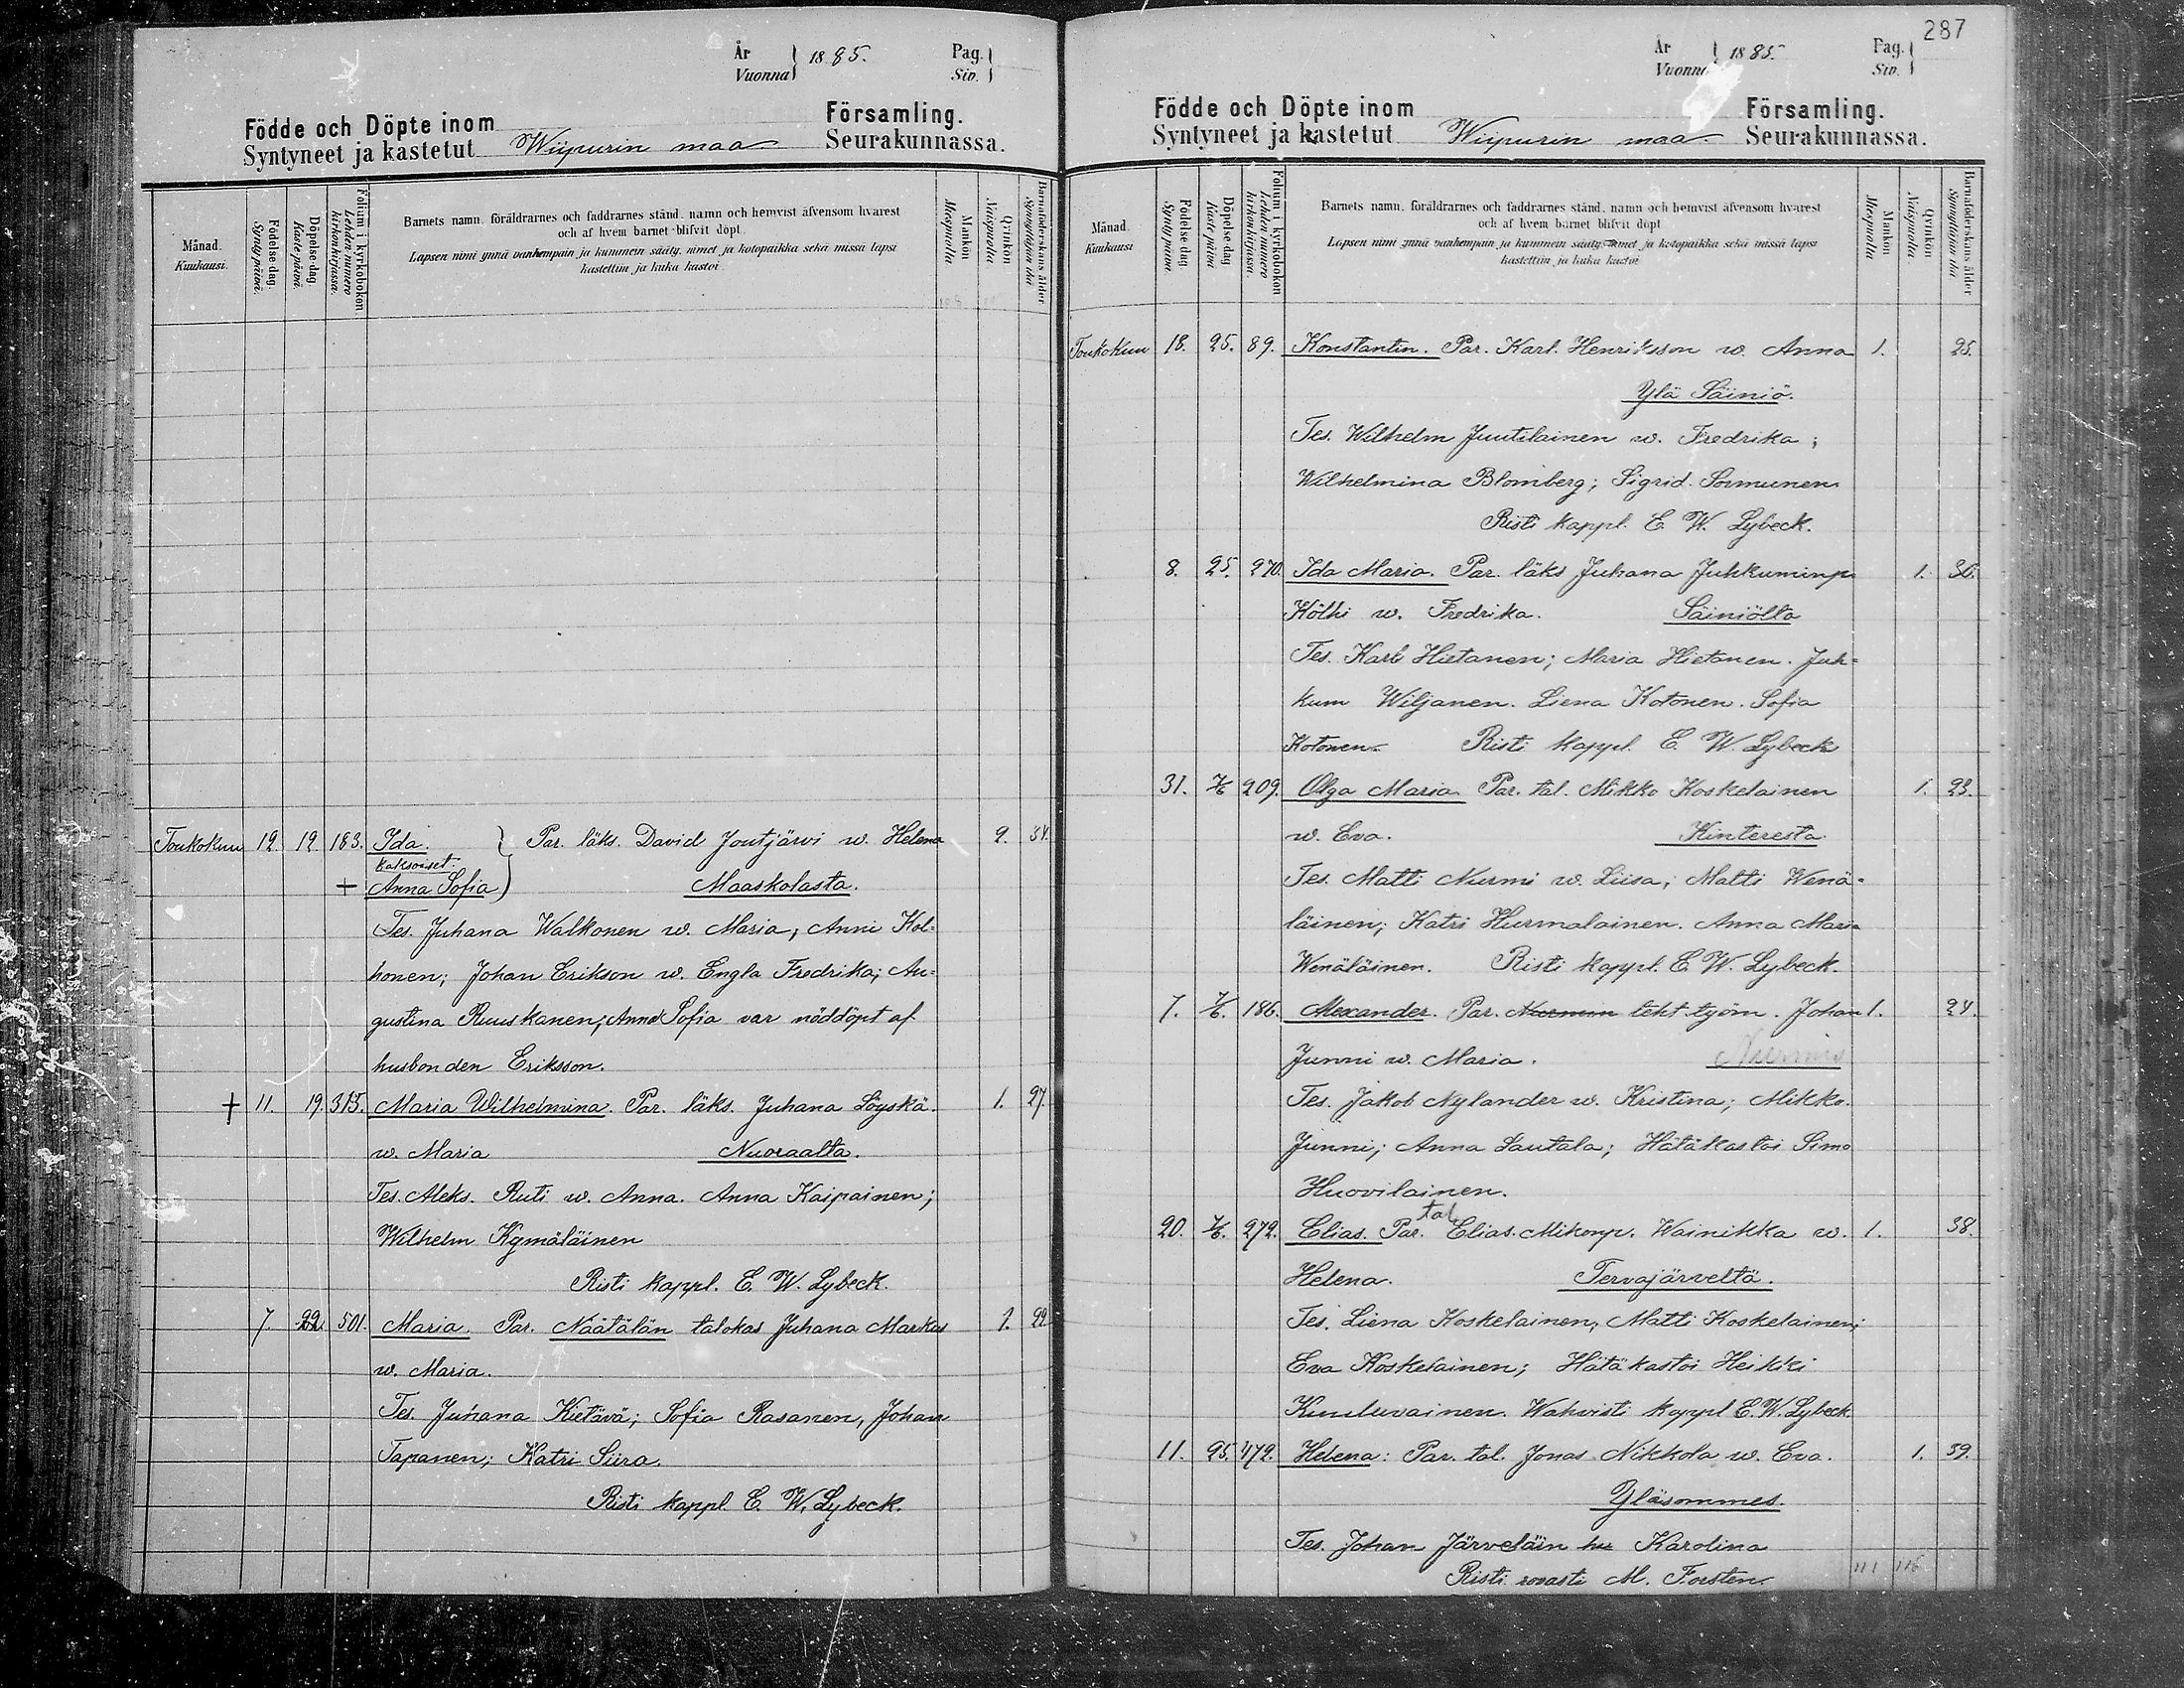 År
Vuonna } 1885.
Pag.
Siv. }
Födde och Döpte inom Församling.
Syntyneet ja kastetut Wiipurin maa Seurakunnassa.
Månad.
Kuukausi.
Födelse dag.
Synty päivä.
Döpelse dag
Kaste päivä.
Folium i kyrkoboken
Lehden numero
kirkonkirjassa.
Barnets namn, föräldrarnes och faddrarnes stånd, namn och hemvist äfvensom hvarest
och af hvem barnet blifvit döpt.
Lapsen nimi ynnä vanhempain ja kummein sääty, nimet ja kotopaikka sekä missä lapsi
kastettiin ja kuka kastoi
Mankön
Miespuolia
Qvinkön
Naispuolia
Barnaföderskans ålder
Synnyttäjän ikä
Toukokuu 12. 19. 183. Ida. } Par. läks. David Joutjärvi w. Helena 2. 34.
kaksoiset.
+ Anna Sofia } Maaskolasta.
Tes. Juhana Walkonen w. Maria, Anni Kol-
honen; Johan Erikson w. Engla Fredrika; Au-
gustina Ruuskanen; Anna Sofia var nöddöpt af
husbonden Eriksson.
+ 11. 19. 315. Maria Wilhelmina. Par. läks. Juhana Löyskä. 1. 27.
w. Maria Nuoraalta.
Tes. Aleks. Ruti w. Anna. Anna Kaipainen;
Wilhelm Kymäläinen
Risti kappl. E. W. Lybeck.
7. 22. 501. Maria. Par. Näätälän talokas Juhana Markus 1. 22.
w. Maria.
Tes. Juhana Kietävä; Sofia Rasanen, Johan
Tapanen; Katri Siira.
Risti kappl. E. W. Lybeck.
287
År
Vuonna } 1885.
Pag.
Siv. }
Födde och Döpte inom Församling.
Syntyneet ja kastetut Wiipurin maa. Seurakunnassa.
Månad.
Kuukausi
Födelse dag.
Synty päivä.
Döpelse dag
Kaste päivä
Folium i kyrkoboken
Lehden numero
kirkonkirjassa.
Barnets namn, föräldrarnes och faddrarnes stånd, namn och hemvist äfvensom hvarest
och af hvem barnet blifvit döpt
Lapsen nimi ynnä vanhempain ja kummein sääty, nimet ja kotopaikka sekä missä lapsi
kastettiin ja kuka kastoi
Mankön
Miespuolia
Qvinkön
Naispuolia.
Barnaföderskans ålder
Synnyttäjän ikä
Toukokuu 18. 25. 89. Konstantin. Par. Karl. Henriksson w. Anna 1. 25.
Ylä Säiniö.
Tes. Wilhelm Juutilainen w. Fredrika;
Wilhelmina Blomberg; Sigrid Sormunen
Risti kappl. E. W. Lybeck.
8. 25. 270. Ida Maria. Par. läks Juhana Juhkuminp. 1. 36.
Kölhi w. Fredrika. Säiniöltä
Tes. Karl Hietanen; Maria Hietanen. Juh-
kum Wiljanen. Liena Kotonen. Sofia
Kotonen. Risti kappl. E. W. Lybeck
31. 7/6 209. Olga Maria Par. tal. Mikko Koskelainen 1. 23.
w. Eva. Kinteresta
Tes. Matti Nurmi w. Liisa; Matti Wenä-
läinen; Katri Hurmalainen. Anna Maria
Wenäläinen. Risti kappl. E. W. Lybeck.
7. 7/6. 186. Alexander. Par. Nurmin teht. työm. Johan 1. 24.
Junni w. Maria. Nurmis
Tes. Jakob Nylander w. Kristina; Mikko.
Junni; Anna Lautala; Hätäkastoi Simo
Huovilainen.
tal.
20. 7/6. 272. Elias. Par. Elias. Mikonp. Wainikka w. 1. 38.
Helena. Tervajärveltä.
Tes. Liena Koskelainen; Matti Koskelainen;
Eva Koskelainen; Hätäkastoi Heikki
Kuuluvainen. Wahvisti kappl E. W. Lybeck.
11. 25. 472. Helena: Par. tal. Jonas Nikkola w. Eva. 1. 39.
Yläsommes.
Tes. Johan Järveläin hu Karolina
Risti rovasti M. Forsten.
111 116